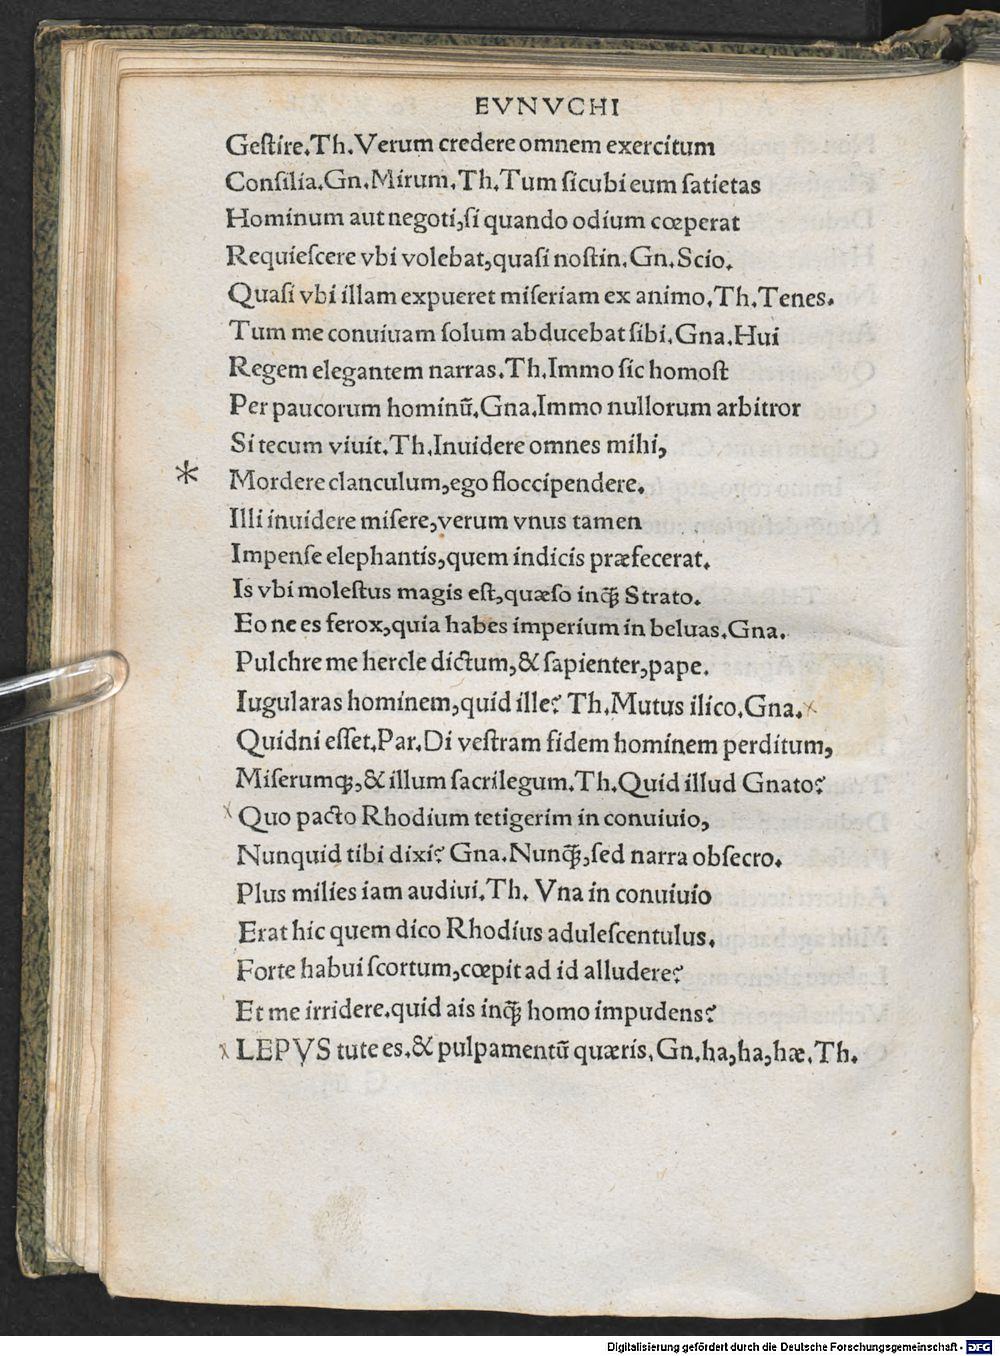 EVNVCHI
Geſtire.Th.Verum credere omnem exercitum
Conſilia.Gn.Mirum.Th.Tum ſicubi eum ſatietas
Hominum aut negoti,ſi quando odium cœperat
Requieſcere vbi volebat,quaſi noſtin.Gn.Scio.
Quaſi vbi illam expueret miſeriam ex animo.Th.Tenes.
Tum me conuiuam ſolum abducebat ſibi.Gna.Hui
Regem elegantem narras.Th.Immo ſic homoſt
Per paucorum hominū.Gna.Immo nullorum arbitror
Si tecum viuit.Th.Inuidere omnes mihi,
* Mordere clanculum,ego floccipendere.
Illi inuidere miſere,verum vnus tamen
Impenſe elephantis,quem indicis præfecerat.
Is vbi moleſtus magis eſt,quæſo inq̃ Strato.
Eo ne es ferox,quia habes imperium in beluas.Gna.
Pulchre me hercle dictum,& ſapienter,pape.
Iugularas hominem,quid ille? Th.Mutus ilico.Gna. x
Quidni eſſet.Par.Di veſtram fidem hominem perditum,
Miſerumq;,& illum ſacrilegum.Th.Quid illud Gnato?
x Quo pacto Rhodium tetigerim in conuiuio,
Nunquid tibi dixi? Gna.Nunq̃,ſed narra obſecro.
Plus milies iam audiui.Th. Vna in conuiuio
Erat hic quem dico Rhodius aduleſcentulus.
Forte habui ſcortum,cœpit ad id alludere?
Et me irridere.quid ais inq̃ homo impudens?
x LEPVS tute es.& pulpamentū quæris.Gn.ha,ha,hæ.Th.
Digitalisierung gefördert durch die Deutsche Forschungsgemeinschaft - DFG